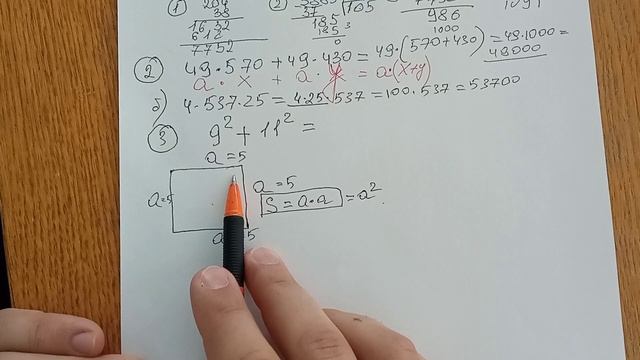 ① 204
38
1632
612
7752
②
37
105
185
185
0
986
1000
② 49·570 + 49·430 = 49·(570+430) = 49·1000 =
49000
a·x + a· = a·(x+y)
б) 4·537·25 = 4·25·537 = 100·537 = 53700
③ 9² + 11² =
a = 5
a=5
a = 5
S = a·a = a².
a 5